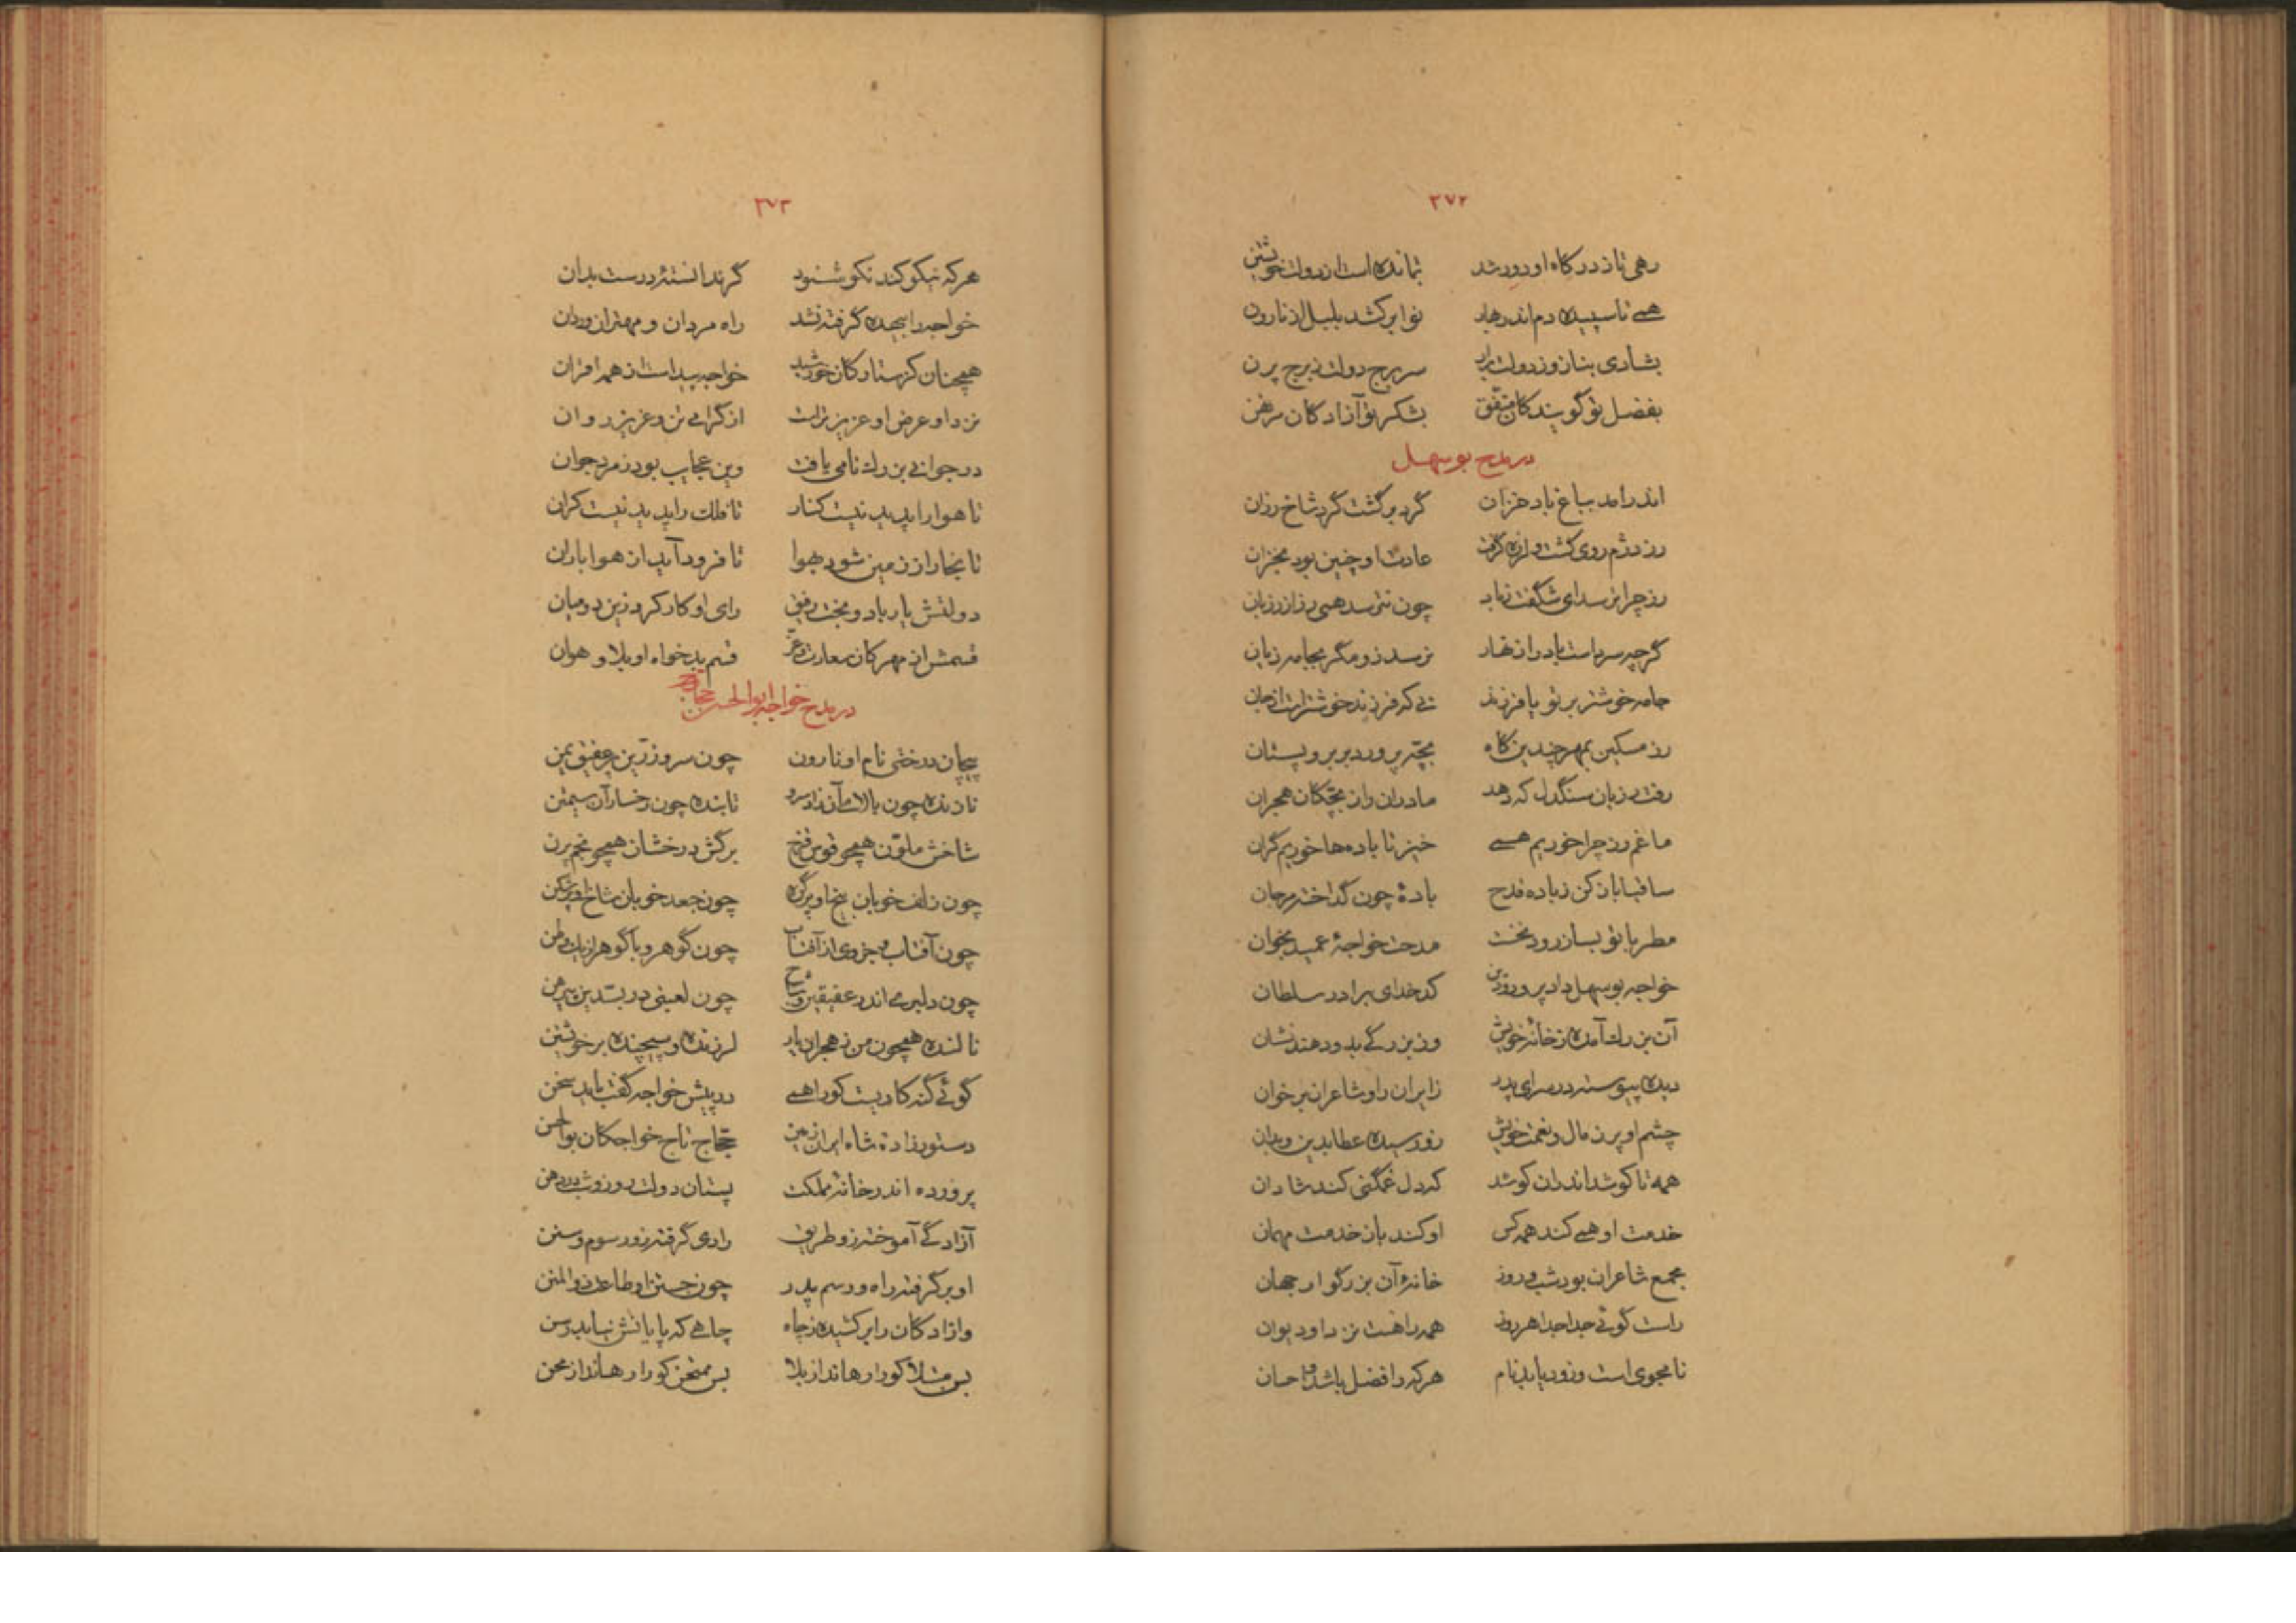 ۲۷۲
رهی تا ز درگاه او دور شد بمانده است از دولت خویشتن
همی تا سپیده دم اندر بهار نوا برکشد بلبل از نارون
بشادی بناز و ز دولت برآر سر برج دولت ز برج پرن
بفضل تو گویندگان متفق بشکر تو آزادگان مرتهن
در مدح بوسهل
اندر آمد بباغ باد خزان گرد برگشت گرد شاخ رزان
رز دژم روی گشت و لرزه گرفت عادت او چنین بود بخزان
رز چرا ترسد ای شگفت ز باد چون نترسد همی رز از رزبان
گرچه سرماست باد را بنهار نرسد زو مگر بجامه زیان
جامه خوشتر بر تو یا فرزند نی که فرزند خوشتر است از جان
رز مسکین بمهر چندین گاه بچه پرورد بر بر و پستان
رفت رزبان سنگدل که دهد مادران را ز بچگان هجران
ما غم رز چرا خوریم همی خیز تا باده‌ها خوریم گران
ساقیا بار کن ز باده قدح بادهٔ چون گداخته مرجان
مطربا تو بساز رود نخست مدحت خواجهٔ عمید بخوان
خواجه بوسهل دادپرور و دین کدخدای برادر سلطان
آن بزرگ آمده ز خانهٔ خویش وز بزرگی بدو دهند نشان
دیده پیوسته در سرای پدر زایران را و شاعران بر خوان
چشم او پر ز مال و نعمت خویش زو رسیده عطا بدین و بدان
همه تا کوشد اندران کوشد که دل غمگنی کند شادان
خدمت او همی کند همه کس او کند باز خدمت مهمان
مجمع شاعران بود شب و روز خانهٔ آن بزرگوار جهان
راست گوئی جدا جدا هر روز همه را هست نزد او دیوان
نامجوی است و زود یابد نام هر که را فضل باشد و احسان
۲۷۳
هر که نیکو کند نکو شنود گر ندانستهٔ درست بدان
خواجه را بیهده گرفته نشد راه مردان و مهتران و ردان
همچنان کز ستارگان خورشید خواجه پیداست از همه اقران
نزد او عرض او عزیزتر است از گرامی تن و عزیز روان
در جوانی بزرگ نامی یافت وین عجایب بود ز مرد جوان
تا هوا را پدید نیست کنار تا فلک را پدید نیست کران
تا بخار از زمین شود بهوا تا فرود آید از هوا باران
دولتش یار باد و بخت رفیق رای او کار کرد زین دو میان
قسمش از مهرکان سعادت و عز قسم بدخواه او بلا و هوان
در مدح خواجه ابوالحسن حجاج
پیچان درختی نام او نارون چون سرو زرین پر عقیق یمن
نازنده چون بالای آن زاد سرو تابنده چون رخسار آن سیمتن
شاخش ملون همچو قوس قزح برگش درخشان همچو نجم پرن
چون زلف خوبان بیخ او پر گره چون جعد خوبان شاخ او پر شکن
چون آفتاب و جزوی از آفتاب چون گوهر و با گوهر از یک وطن
چون دلبری اندر عقیقین وشاح چون لعبتی در بسدین پیرهن
نالنده همچون من ز هجران یار لرزنده و پیچنده بر خویشتن
گوئی گنه‌کاریست کو را همی در پیش خواجه گفت باید سخن
دستورزادهٔ شاه ایران زمین حجاج تاج خواجگان بوالحسن
پرورده اندر خانهٔ مملکت پستان دولت روز و شب در دهن
آزادگی آموخته زو طریق رادی گرفته زو رسوم و سنن
او برگرفته راه و رسم پدر چون جستن او طاعت ذوالمنن
وازادگان را برکشیده ز چاه چاهی که پایانش نیابد رسن
بس مبتلا کو را رهاند از بلا بس ممتحن کو را رهاند از محن